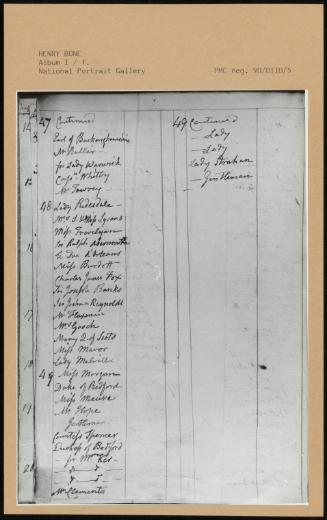 HENRY BONE
Album 1 / f.
National Portrait Gallery
PMC reg. 90/0110/5
47 Continued
Earl of Buckinghamshire
Mr Buller
for Lady Warwick
Capt Whitby
Mr Towrey
48 Lady Ridesdale
Mrs & Miss Lysons
Miss Trevelyan
Sir Ralph
le Duc d'Orleans
Miss Burdett
Charles James Fox
Sir Joseph Banks
Sir Joshua Reynolds
Mr Flaxman
Mrs Gooch
Mary Q of Scots
Miss Mavor
Lady Melville
49 Miss Morgan
Duke of Bedford
Miss
Mr Hope
Gentleman
Countess Spencer
Duchess of Bedford
for Mr Ker
Mr Clements
49 Continued
Lady
Lady
Lady Strahan
Gentleman
12
17
19
20